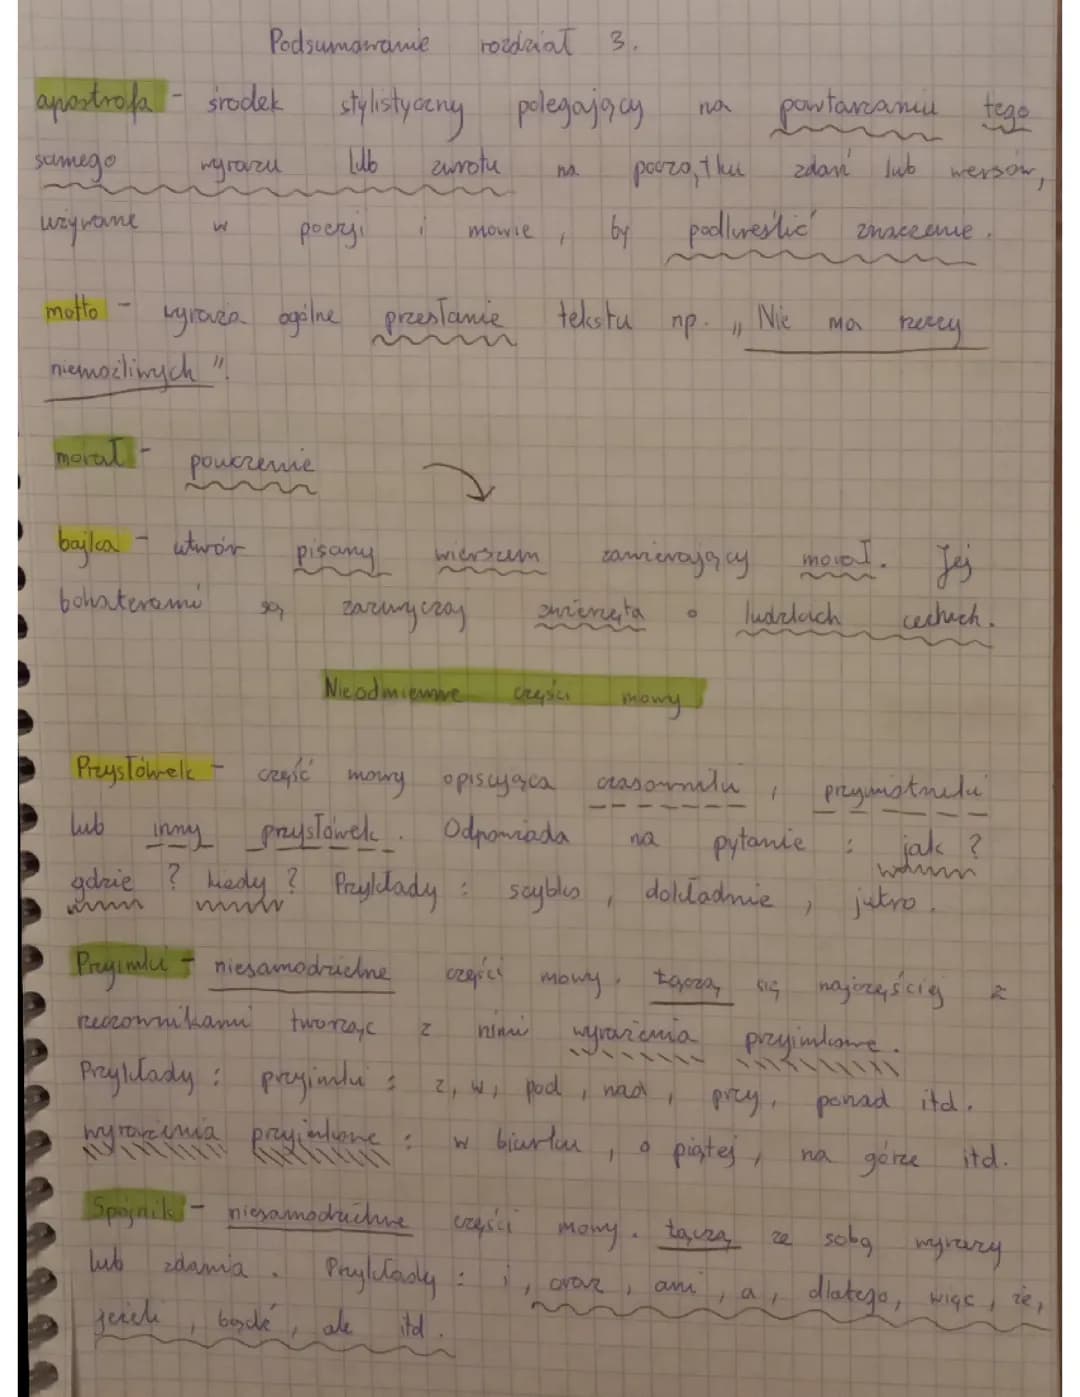 Podsumowanie rozdział 3.
apostrofa - środek stylistyczny polegający na powtarzaniu tego
samego wyrazu lub zwrotu na początku zdań lub wersów,
używane w poezji i mowie, by podkreślić znaczenie.
motto - wyraża ogólne przesłanie tekstu np. „Nie ma rzeczy
niemożliwych".
morał - pouczenie
bajka - utwór pisany wierszem zawierający morał. Jej
bohaterami są zazwyczaj zwierzęta o ludzkich cechach.
Nieodmienne części mowy
Przysłówek - część mowy opisująca czasownik, przymiotnik
lub inny przysłówek. Odpowiada na pytanie: jak?
gdzie? kiedy? Przykłady: szybko, dokładnie, jutro.
Przyimki - niesamodzielne części mowy. Łączą się najczęściej z
rzeczownikami tworząc z nimi wyrażenia przyimkowe.
Przykłady: przyimki: z, w, pod, nad, przy, ponad itd.
wyrażenia przyimkowe: w biurku, o piątej, na górze itd.
Spójnik - niesamodzielne części mowy. Łączą ze sobą wyrazy
lub zdania. Przykłady: i, oraz, ani, a, dlatego, więc, że,
jeżeli, bądź, ale itd.